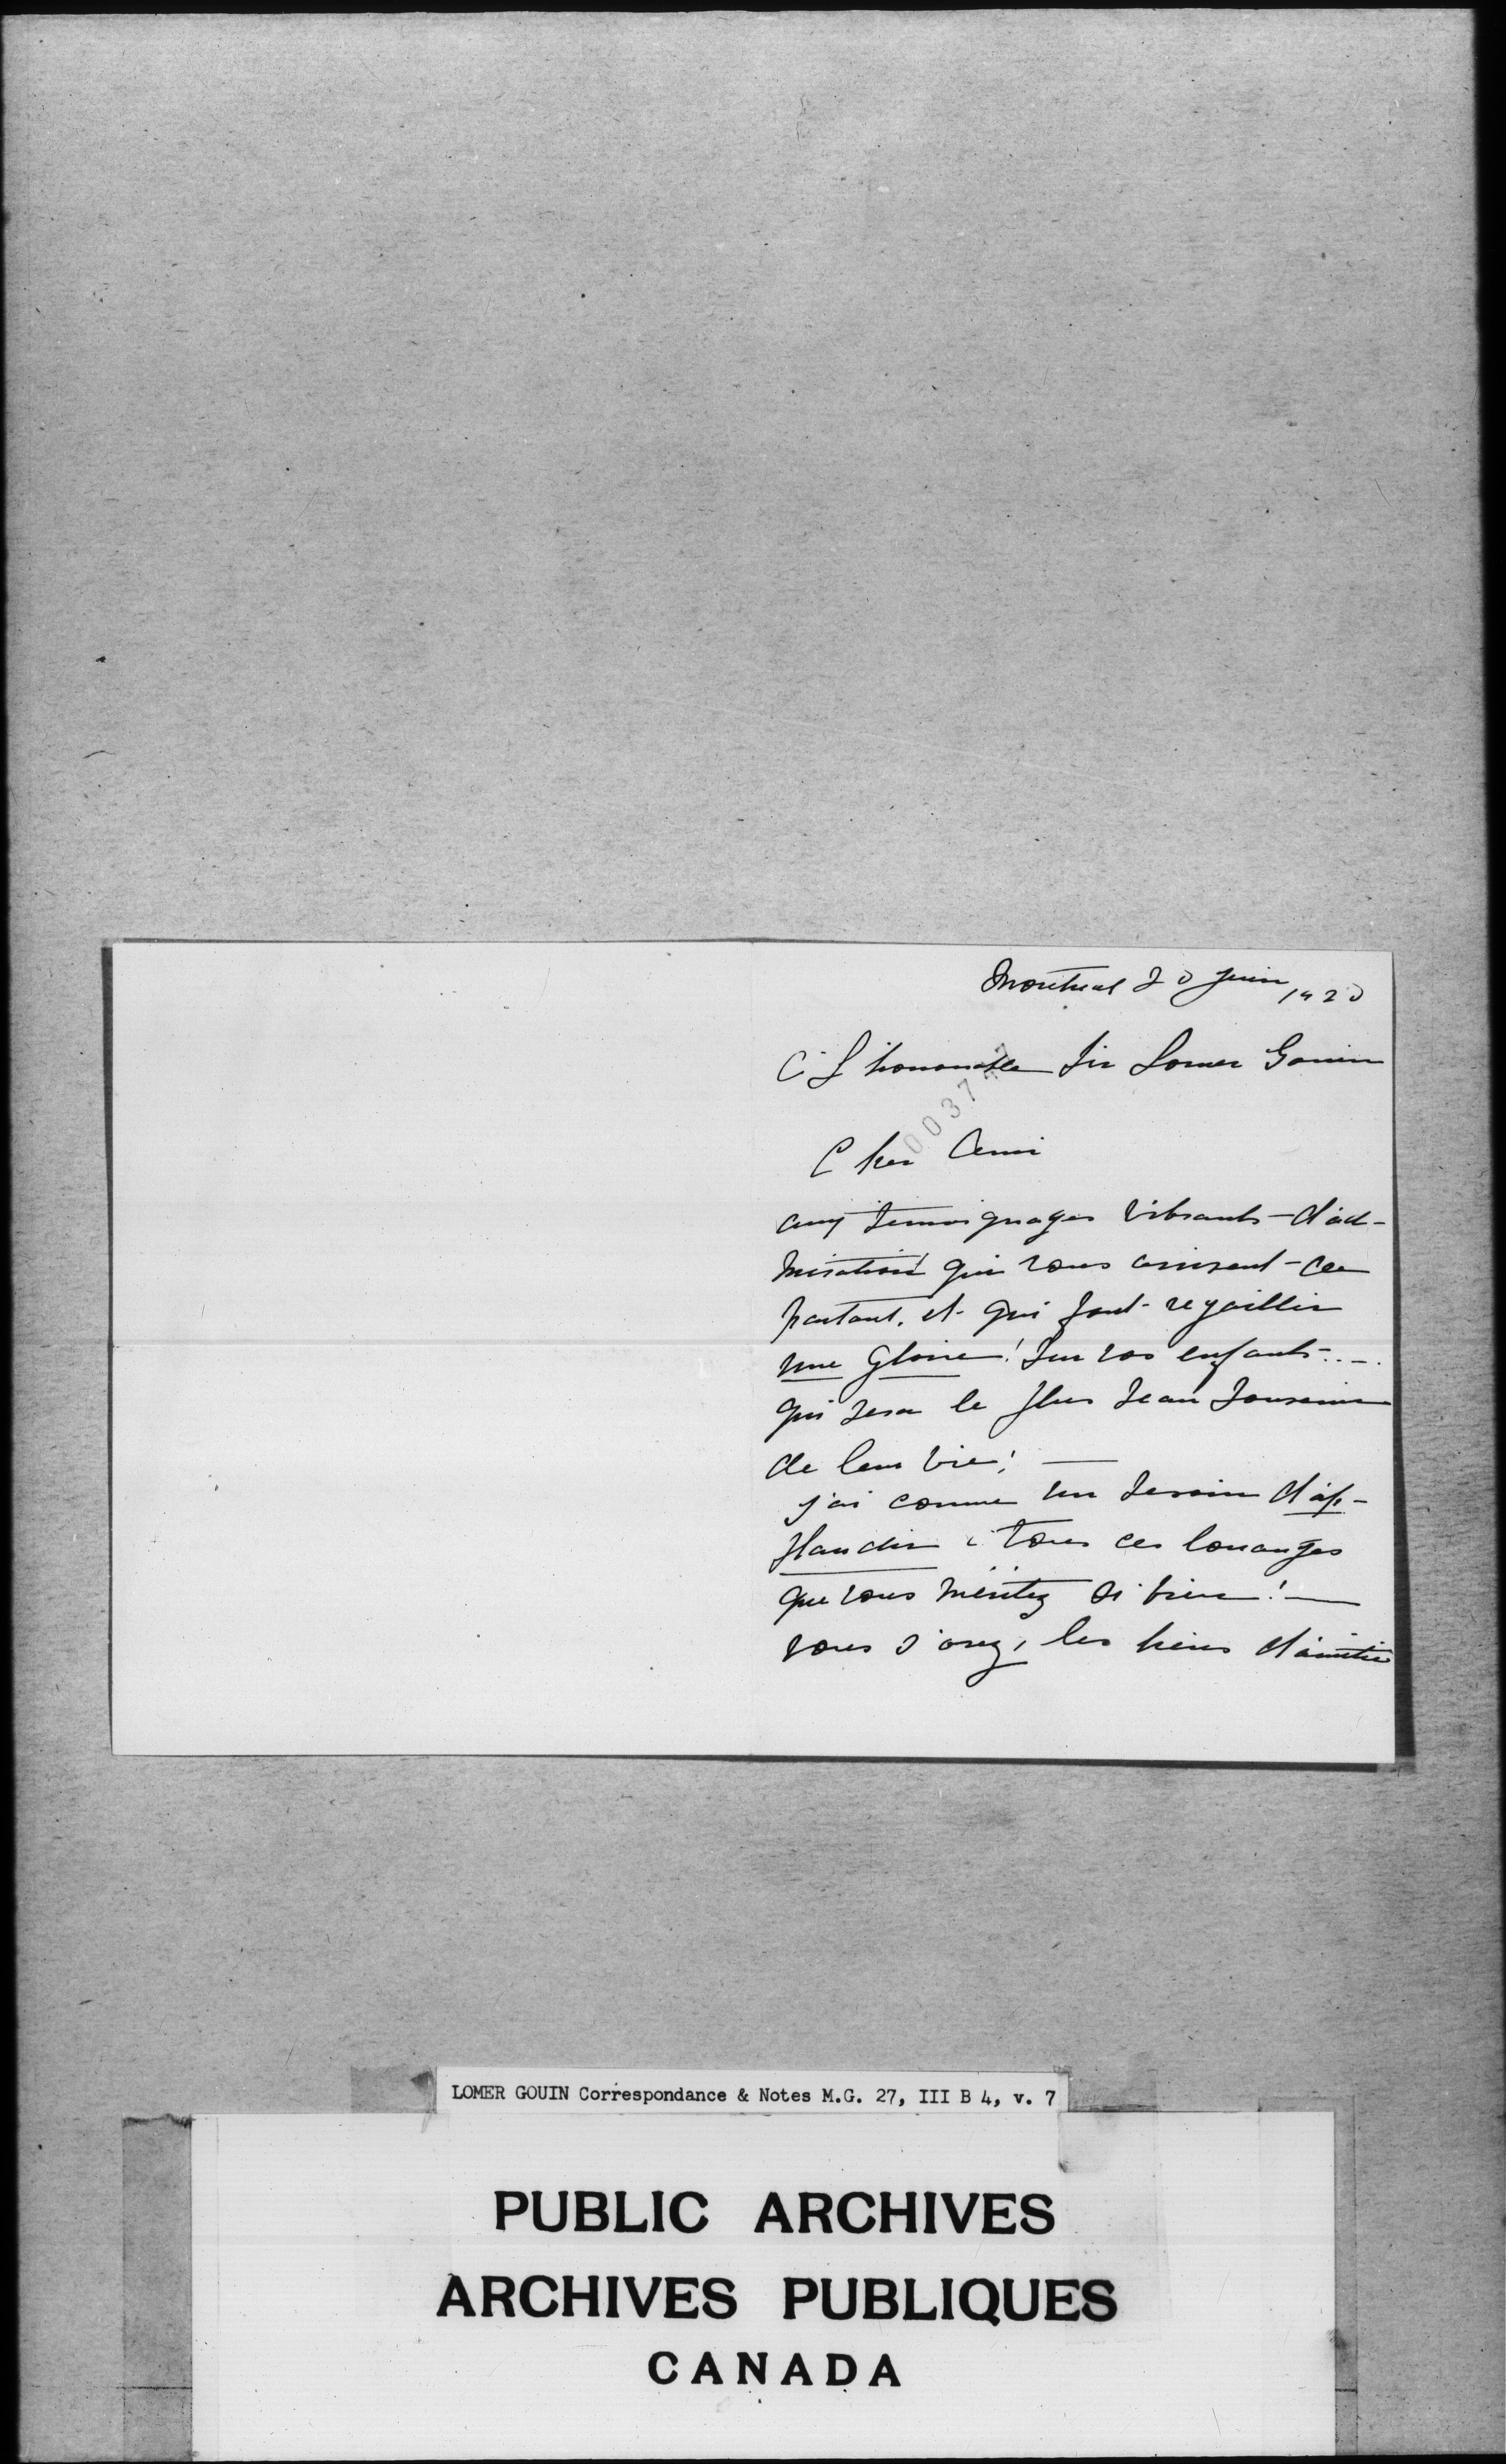 Montreal 20 juin 1920
A L'honorable Sir Lomer Gouin
Cher Ami
aux temoignages vibrants d'ad-
miration qui vous arrivent de
partout, et qui font rejaillir
une gloire! sur vos enfants....
qui sera le plus beau souvenir
de leur vie! —
j'ai comme un besoin d'ap-
plaudir à tous ces louanges
que vous méritez si bien! —
vous savez, les liens d'amitié
LOMER GOUIN Correspondance & Notes M.G. 27, III B 4, v. 7
PUBLIC ARCHIVES
ARCHIVES PUBLIQUES
CANADA